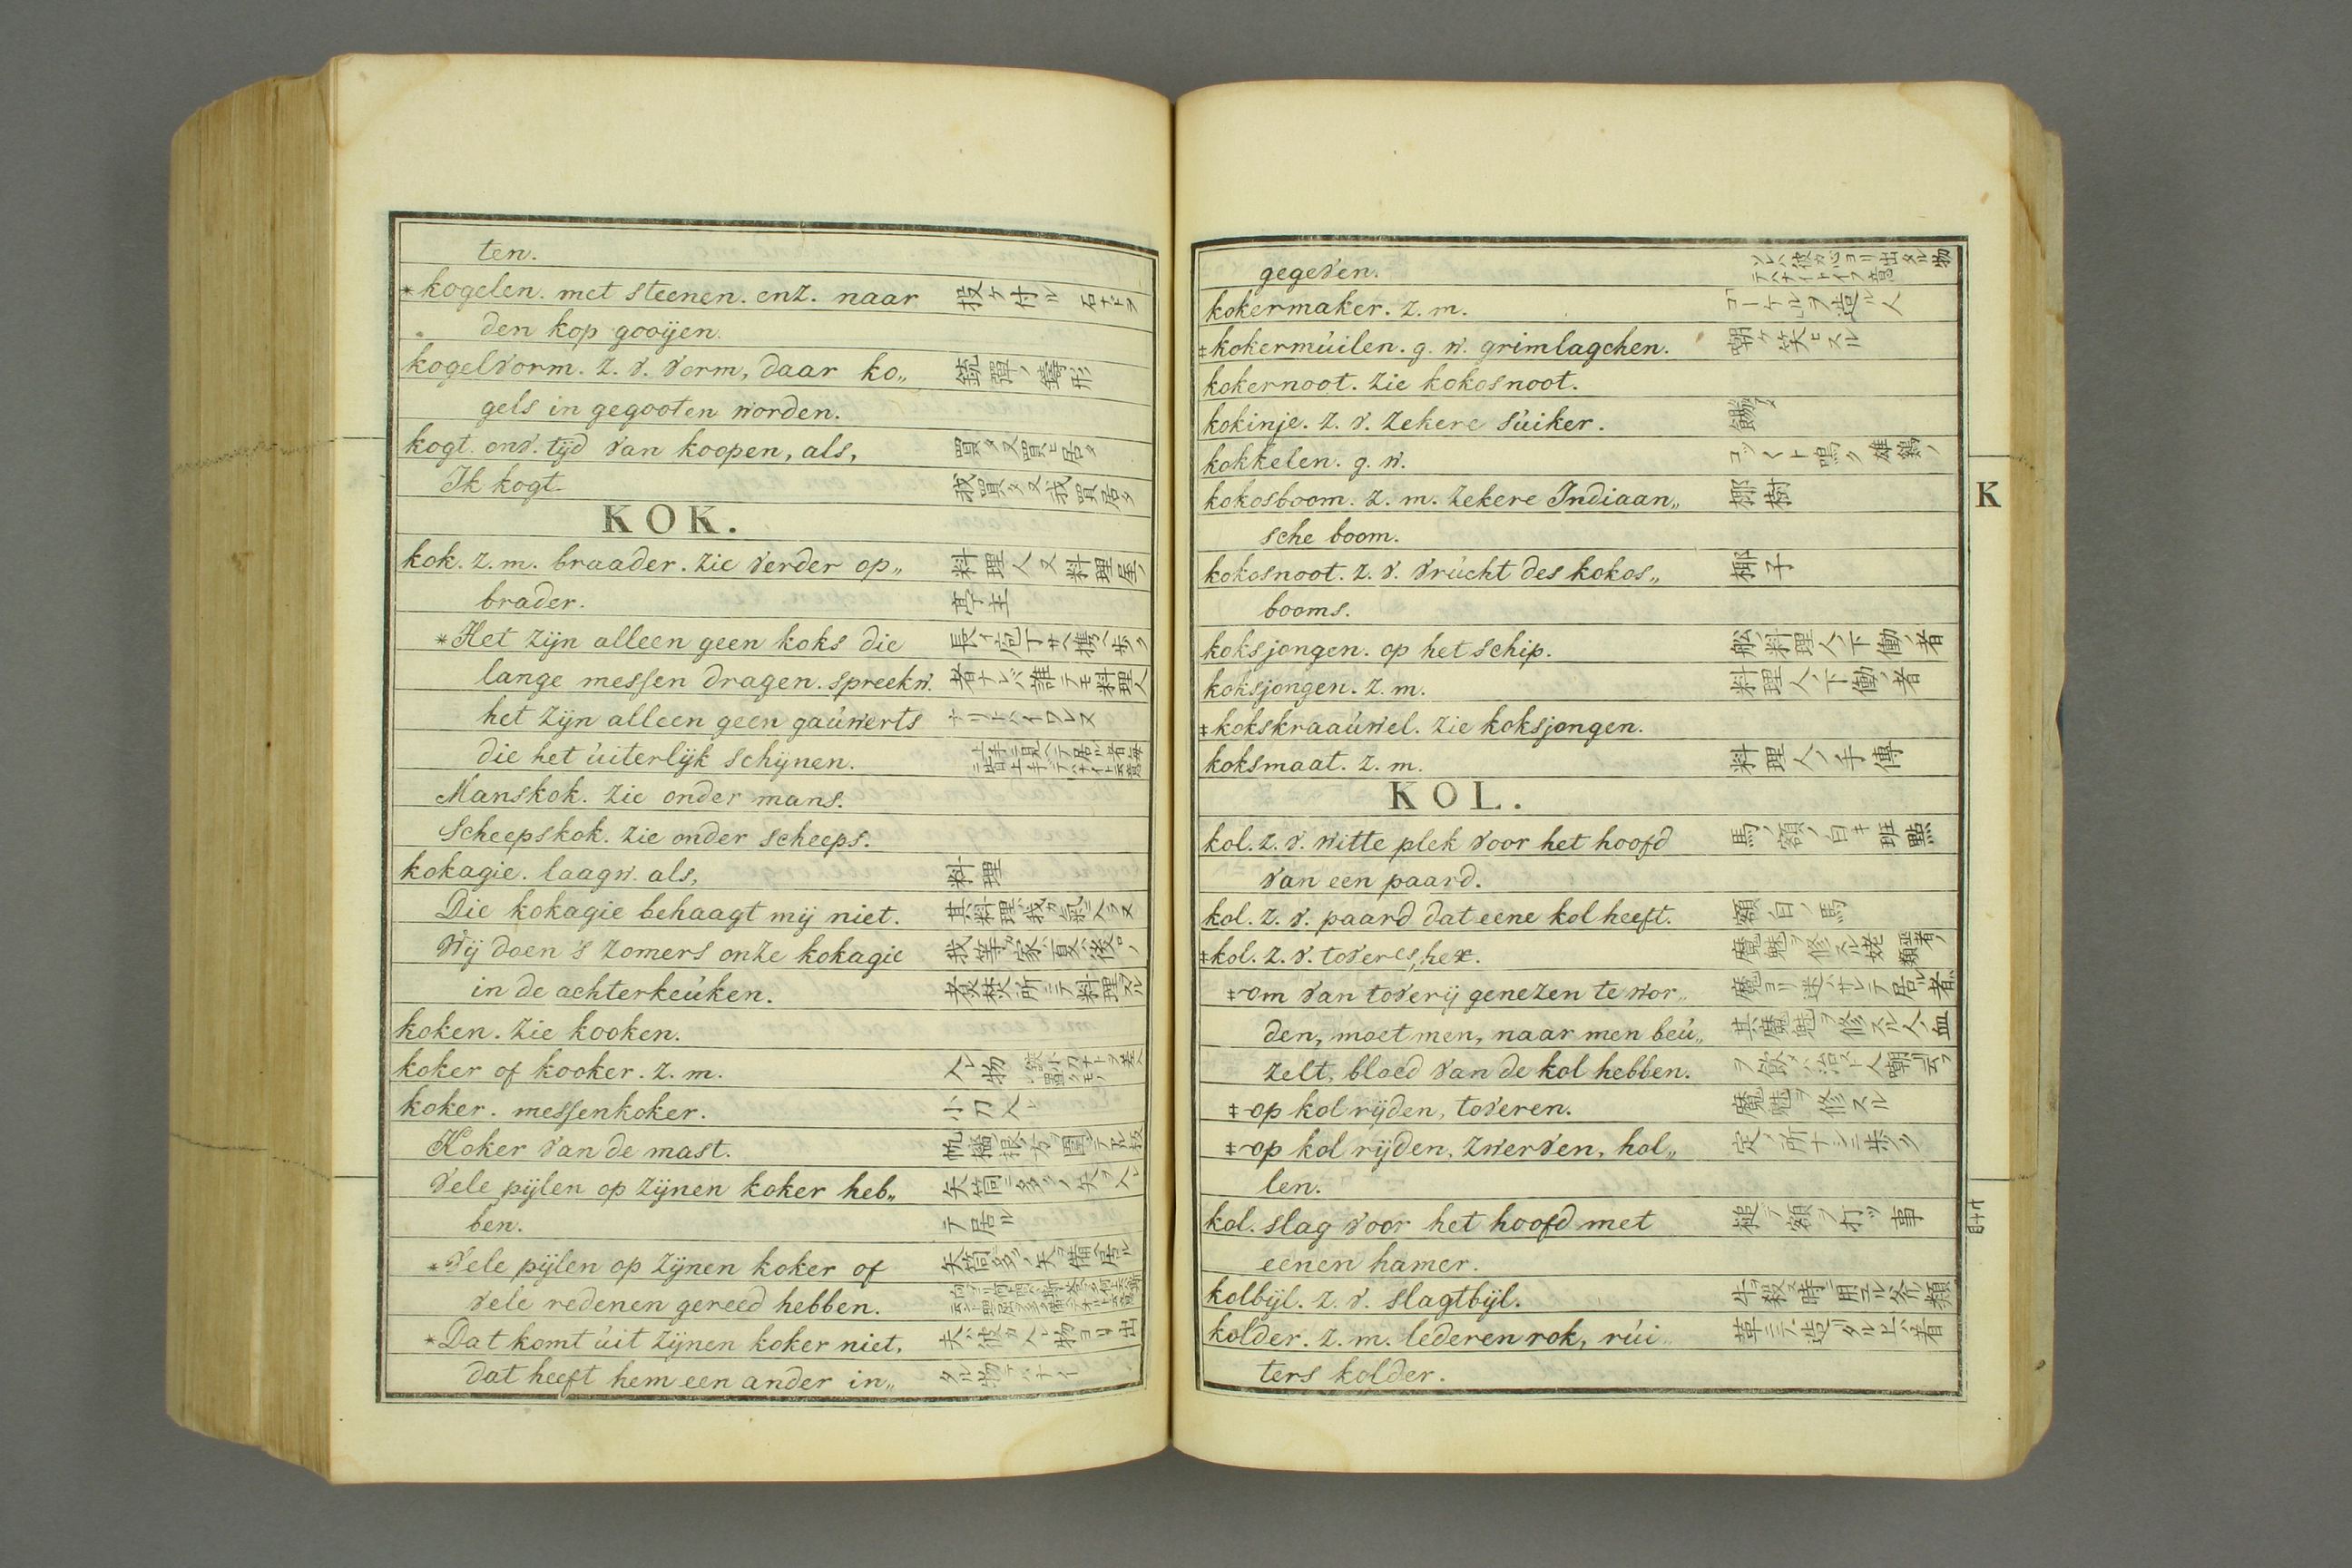 ten.
*kogelen. met steenen. enz. naar 投ケ付ル 石ナトヲ
den kop gooijen.
kogelvorm. z. v. vorm, daar ko„ 銃彈ノ鑄形
gels in gegooten worden.
kogt. onv. tijd van koopen, als, 買タ又買ヒ居タ
Ik kogt. 我買タ又我買居タ
KOK.
kok. z. m. braader. zie verder op„ 料理人又料理屋ノ
brader. 亭主
*Het zijn alleen geen koks die 長イ庖丁サヘ携ヘ歩ク
lange messen dragen. spreekw. 者ナレバ誰テモ料理人
het zijn alleen geen gaúwerts ナリトハイワレヌ
die het úiterlijk schijnen.
Manskok. zie onder mans.
Scheepskok. zie onder scheeps.
kokagie. laagw. als, 料理
Die kokagie behaagt mij niet. 其料理我カ氣ニ入ラヌ
Wij doen 's zomers onze kokagie 我等ガ家ハ夏ハ後ロノ
in de achterkeúken. 煑焚所ニテ料理スル
koken. zie kooken.
koker of kooker. z. m. 入レ物
koker. messenkoker. 小刀入レ
Koker van de mast.
Vele pijlen op zijnen koker heb„ 矢筒ニ多クノ矢ヲ入レ
ben. テ居ル
*Vele pijlen op zijnen koker of 矢筒ニ多クノ矢ヲ備ヘ居ル
vele redenen gereed hebben.
*Dat komt úit zijnen koker niet, 夫ハ彼カ入レ物ヨリ出
dat heeft hem een ander in„ タル物デハナイ
gegeven. ソレハ彼カ心ヨリ出タル物テハナイトイフ意
kokermaker. z. m. コーケルヲ造ル人
‡kokermúilen. g. w. grimlagchen. 嘲ケ笑ヒスル
kokernoot. zie kokosnoot.
kokinje. z. v. zekere súiker. 餳
kokkelen. g. w. コツ〱ト鳴ク 雄鷄ノ
kokosboom. z. m. zekere Indiaan„ 椰樹
sche boom.
kokosnoot. z. v. vrúcht des kokos„ 椰子
booms.
koksjongen. op het schip. 舩ノ料理人ノ下働ノ者
koksjongen. z. m. 料理人ノ下働ノ者
‡kokskraaúwel. zie koksjongen.
koksmaat. z. m. 料理人ノ手傳
KOL.
kol. z. v. witte plek voor het hoofd 馬ノ額ノ白キ班點
van een paard.
kol. z. v. paard dat eene kol heeft. 額白ノ馬
‡kol. z. v. toveres, hex. 魔魅ヲ修スル姥
‡-om van toverij genezen te wor„ 魔ヨリ迷ハサレテ居ル者ガ
den, moet men, naar men beú„ 其魔魅ヲ修スル人ノ血
zelt, bloed van de kol hebben.
‡-op kol rijden, toveren. 魔魅ヲ修スル
‡-op kol rijden, zwerven, hol„ 定ノ所ナシニ歩ク
len.
kol. slag voor het hoofd met 槌ニテ額ヲ打ツ事
eenen hamer.
kolbijl. z. v. slagtbijl. 牛ヲ殺ス時ニ用ユル斧ノ類
kolder. z. m. lederen rok, rúi„ 革ニテ造リタル上ハ着
ters kolder.
K